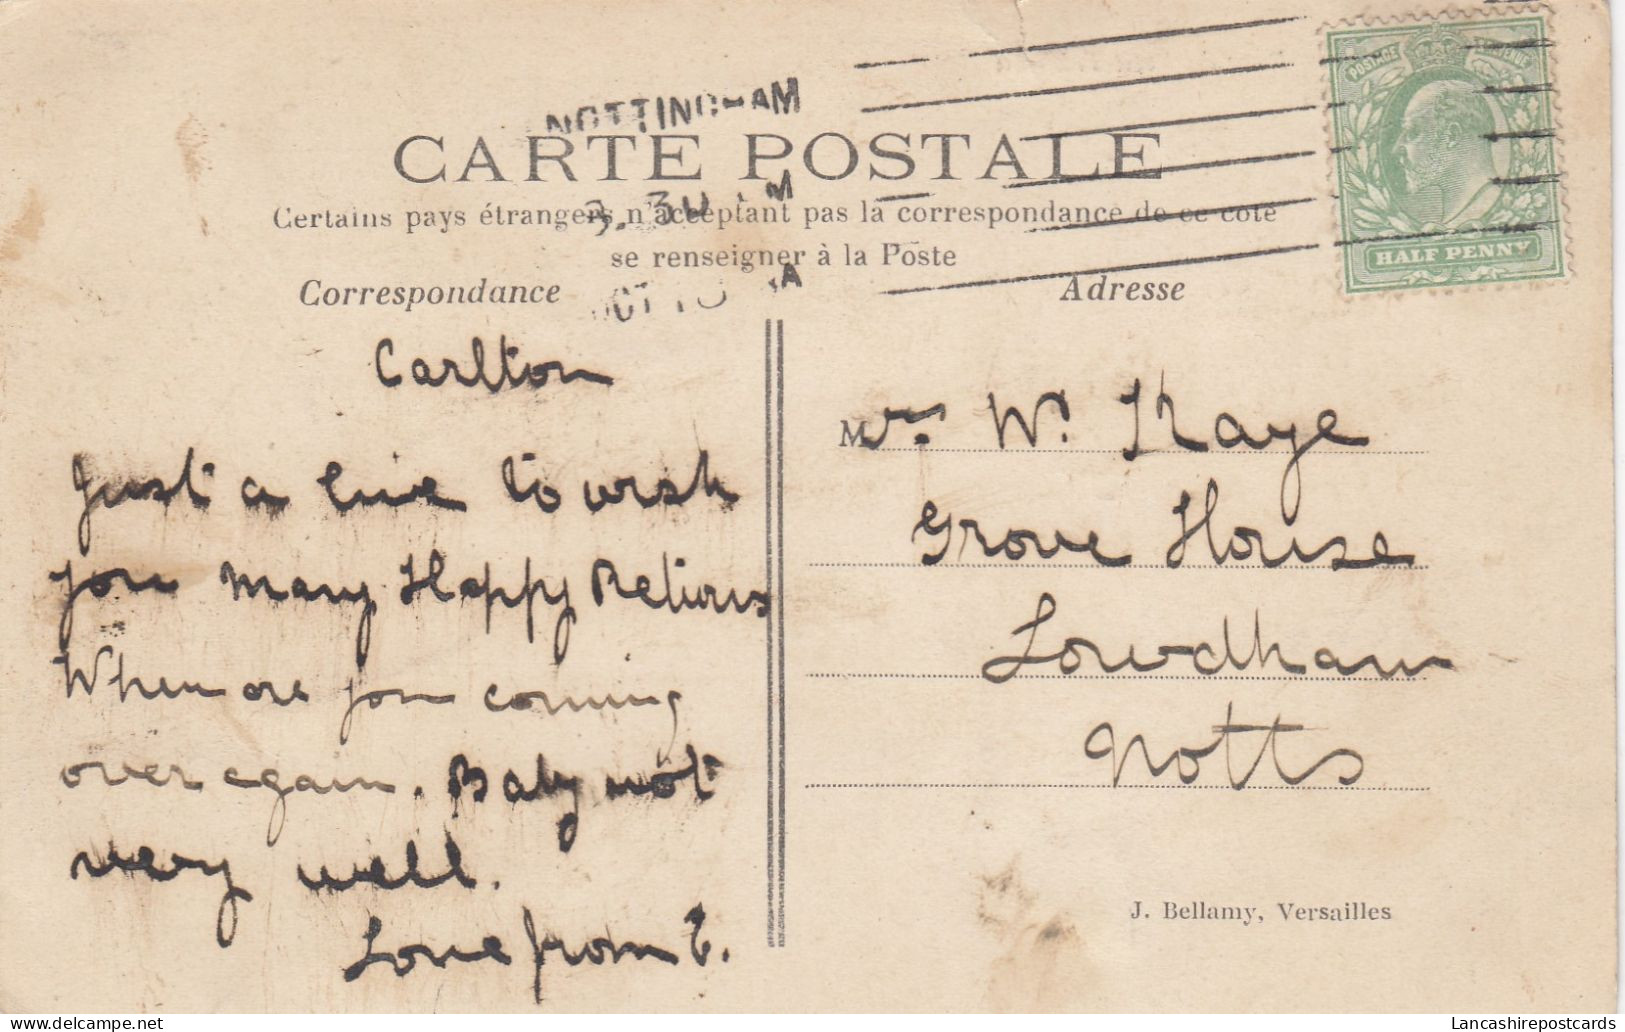 NOTTINGHAM
CARTE POSTALE
Certains pays étrangers n'acceptant pas la correspondance de ce coté
se renseigner à la Poste
Correspondance
Carlton
Just a line to wish
you many Happy Returns
When are you coming
over again. Baby not
very well.
Love from E.
POSTAGE REVENUE
HALF PENNY
Adresse
Mrs. W. Kaye
Grove House
Lowdham
Notts
J. Bellamy, Versailles
Lancashirepostcards